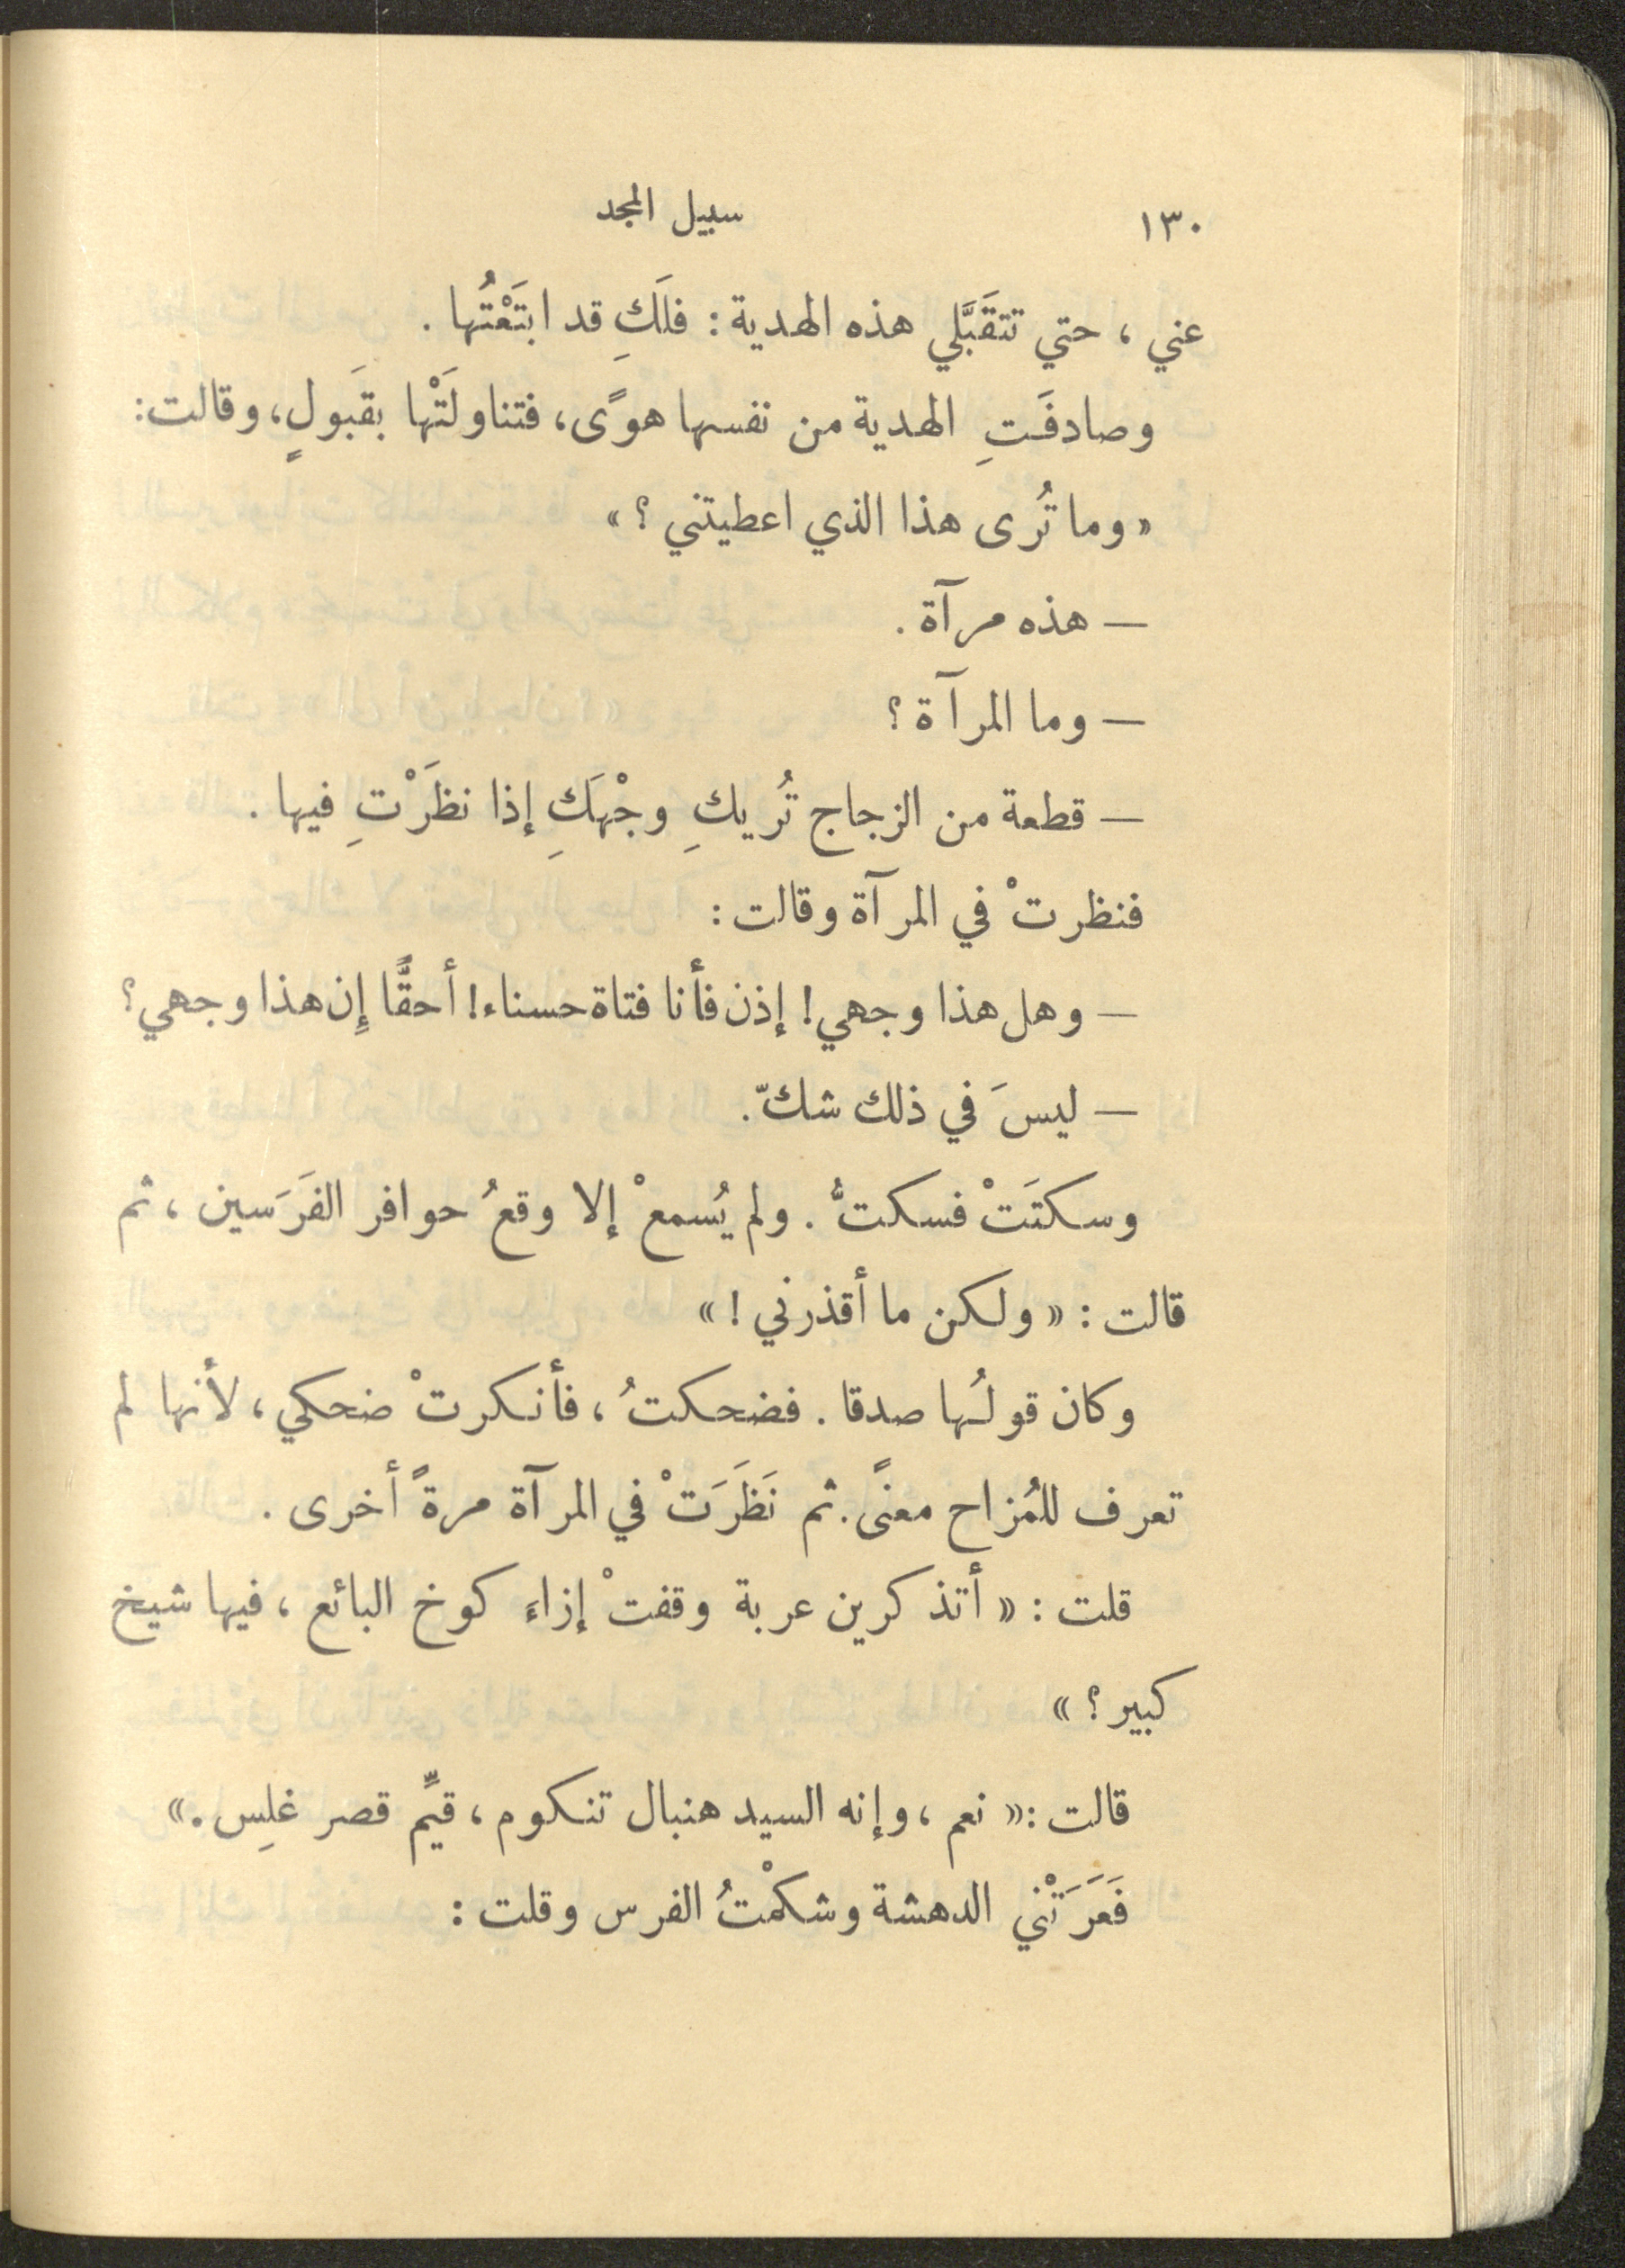 ١٣٠ سبيل المجد
عني ، حتي تتقَبَّلي هذه الهدية : فلَكِ قد ابتَعْتُها .
وصادفَتِ الهدية من نفسها هوًى، فتناولَتْها بقَبولٍ، وقالت:
« وما تُرى هذا الذي اعطيتني ؟ »
— هذه مرآة .
— وما المرآة ؟
— قطعة من الزجاج تُريكِ وجْهَكِ إذا نظَرْتِ فيها .
فنظرتْ في المرآة وقالت :
— وهل هذا وجهي! إذن فأنا فتاة حسناء! أحقًّا إِن هذا وجهي؟
— ليسَ في ذلك شكّ.
وسكتَتْ فسكتُّ . ولم يُسمعْ إلا وقعُ حوافر الفَرَسين ، ثم
قالت : « ولكن ما أقذرني ! »
وكان قولُها صدقا . فضحكتُ ، فأنكرتْ ضحكي، لأنها لم
تعرف للمُزاح معنًى. ثم نَظَرَتْ في المرآة مرةً أخرى .
قلت : « أتذكرين عربة وقفتْ إزاءَ كوخ البائع ، فيها شيخ
كبير ؟ »
قالت :« نعم ، وإنه السيد هنبال تنكوم ، قيِّم قصر غلِس .»
فَعَرَتْني الدهشة وشكمْتُ الفرس وقلت :